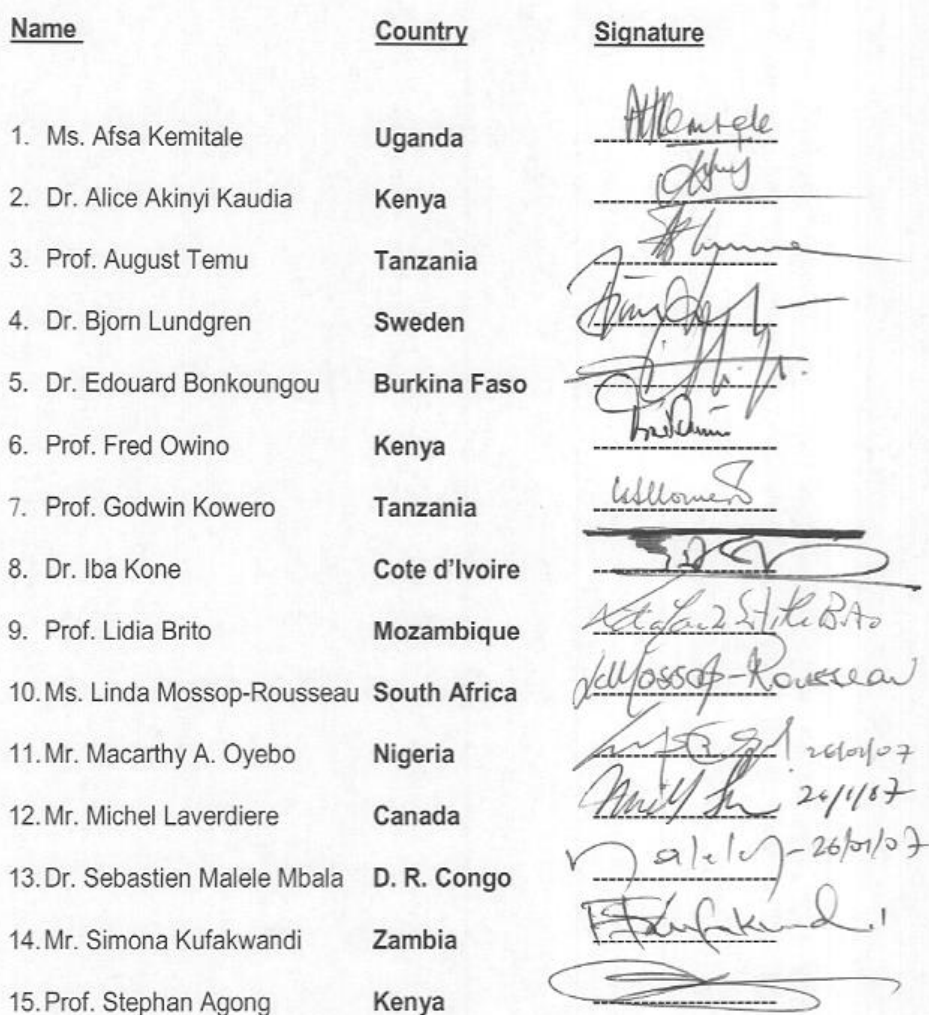 Name Country Signature
1. Ms. Afsa Kemitale Uganda
2. Dr. Alice Akinyi Kaudia Kenya
3. Prof. August Temu Tanzania
4. Dr. Bjorn Lundgren Sweden
5. Dr. Edouard Bonkoungou Burkina Faso
6. Prof. Fred Owino Kenya
7. Prof. Godwin Kowero Tanzania
8. Dr. Iba Kone Cote d'Ivoire
9. Prof. Lidia Brito Mozambique Brito
10. Ms. Linda Mossop-Rousseau South Africa Mossop-Rousseau
11. Mr. Macarthy A. Oyebo Nigeria 26/01/07
12. Mr. Michel Laverdiere Canada 26/1/07
13. Dr. Sebastien Malele Mbala D. R. Congo 26/01/07
14. Mr. Simona Kufakwandi Zambia Kufakwandi
15. Prof. Stephan Agong Kenya